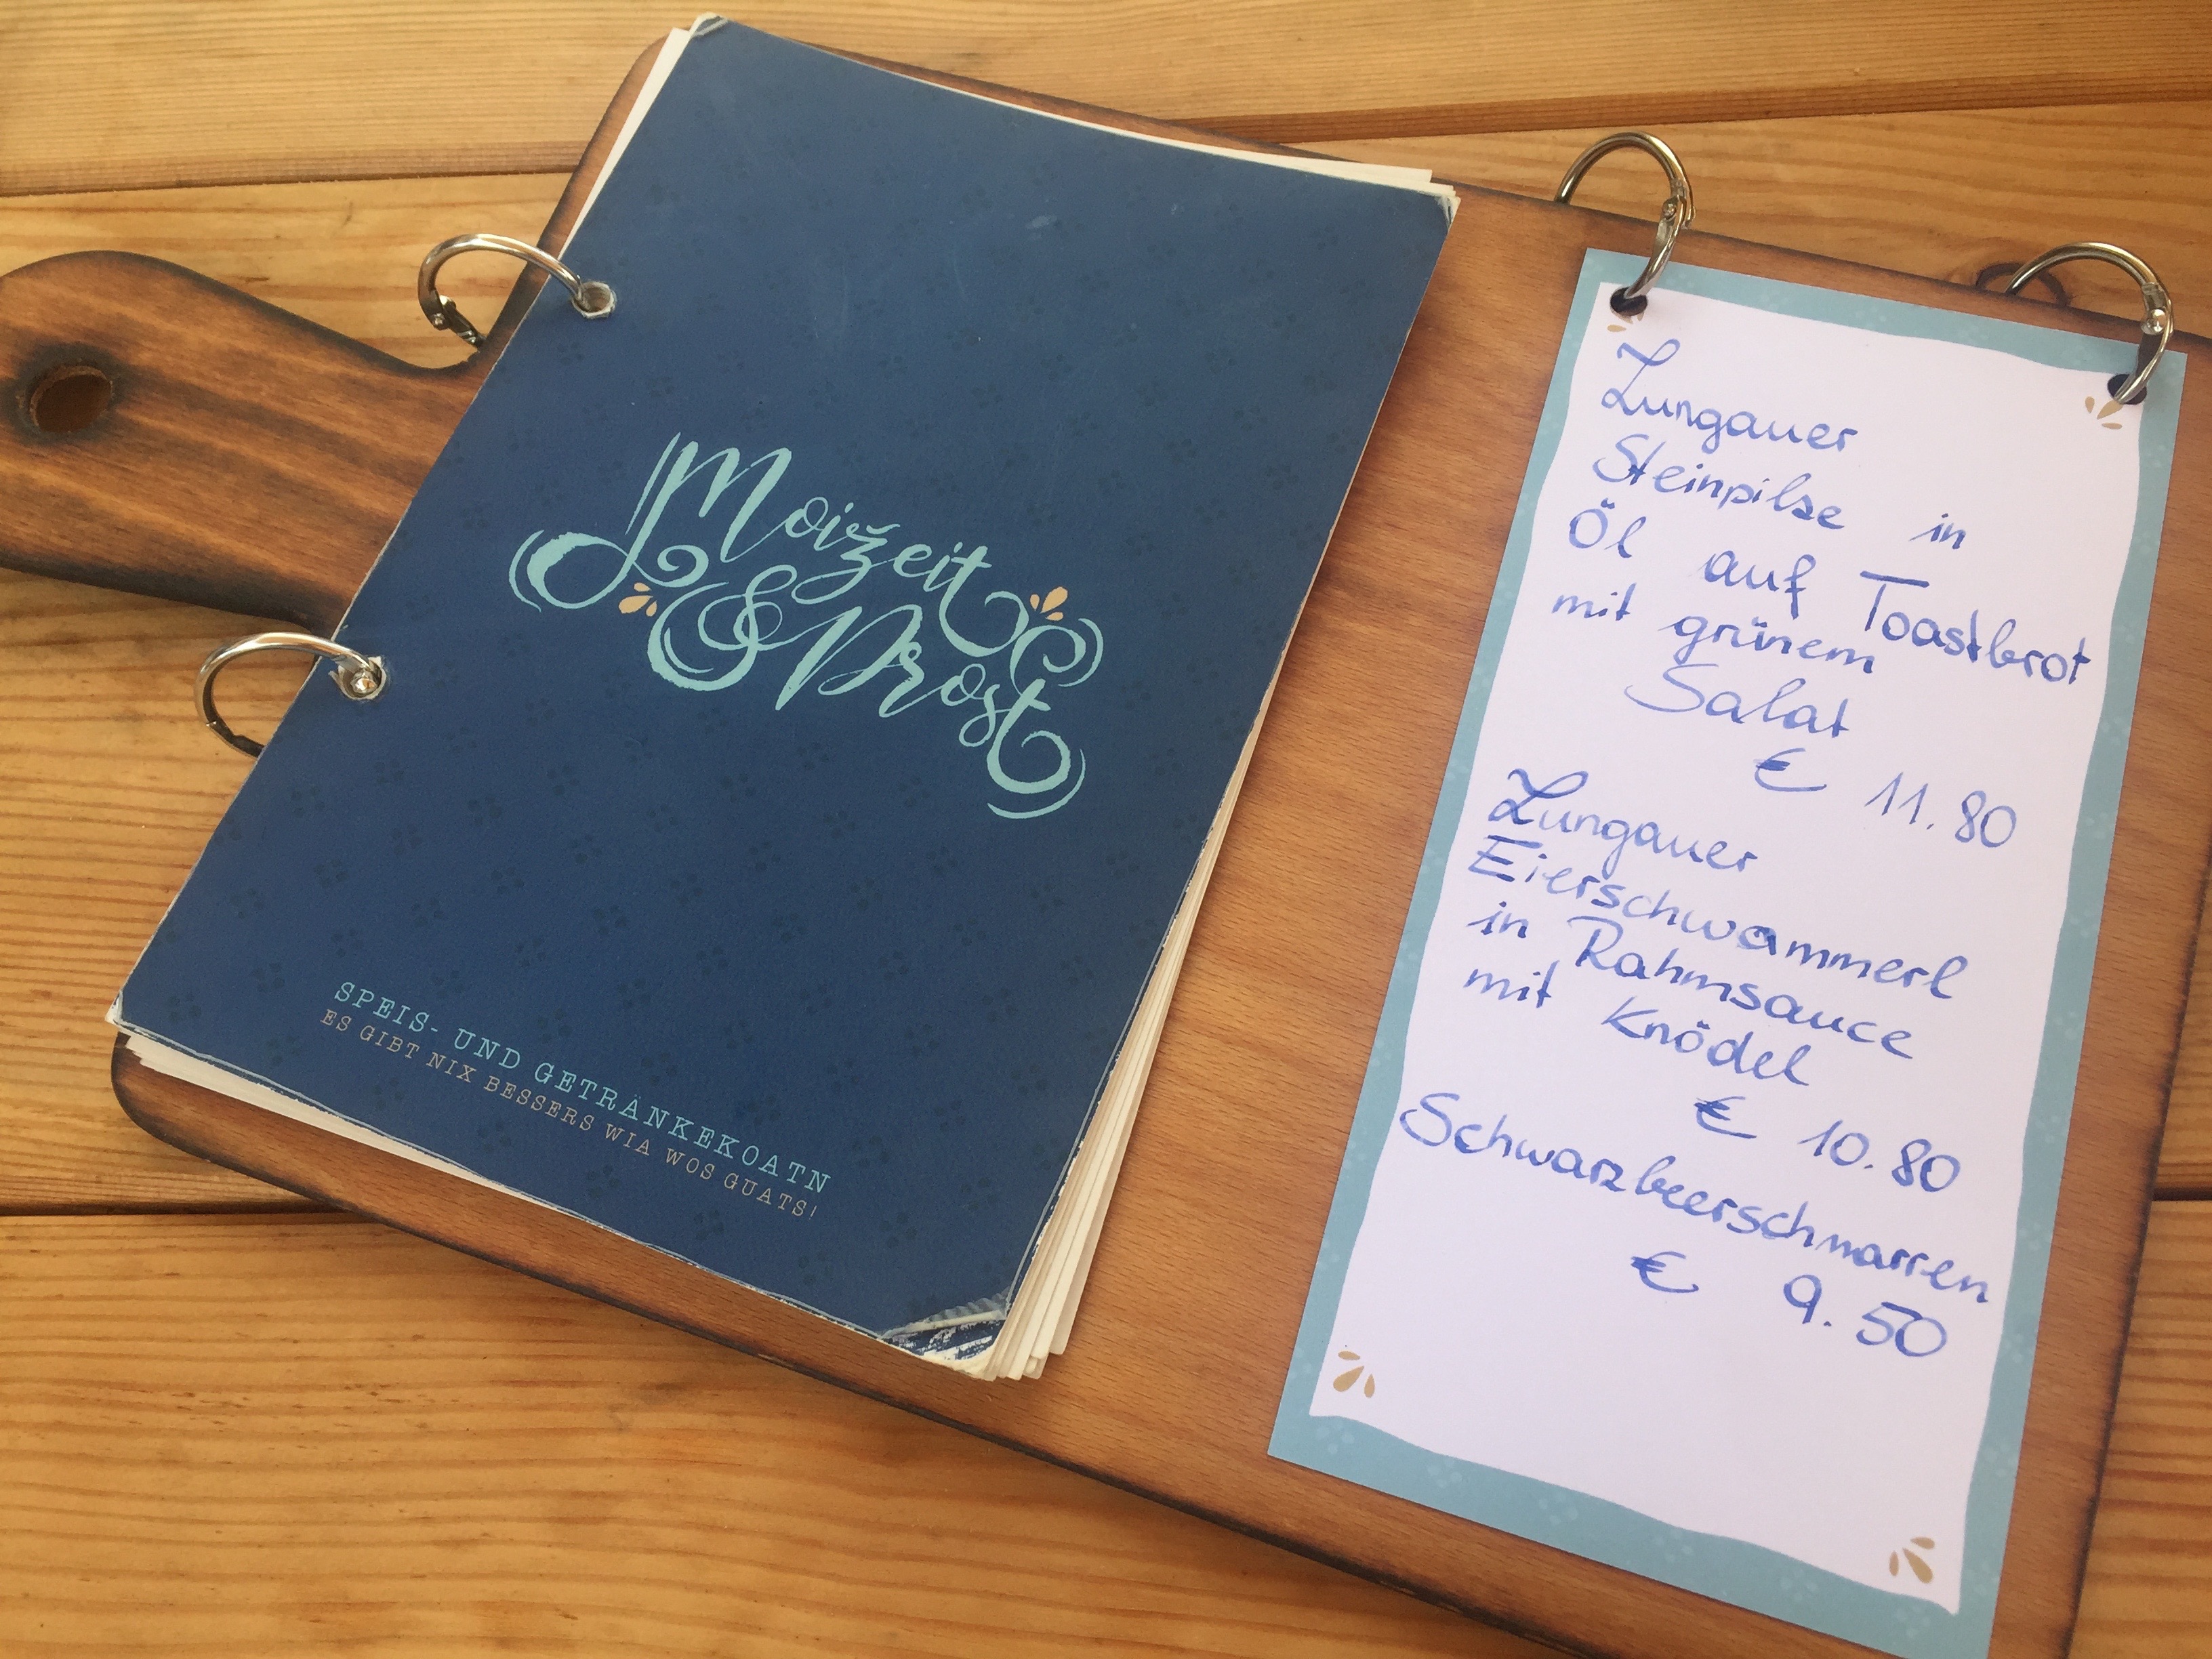 Moizeit
& Prost
SPEIS- UND GETRÄNKEKOATN
ES GIBT NIX BESSERS WIA WOS GUATS!
Lungauer
Steinpilze in
Öl auf Toastbrot
mit grünem
Salat
€ 11.80
Lungauer
Eierschwammerl
in Rahmsauce
mit Knödel
€ 10.80
Schwarzbeerschmarren
€ 9.50